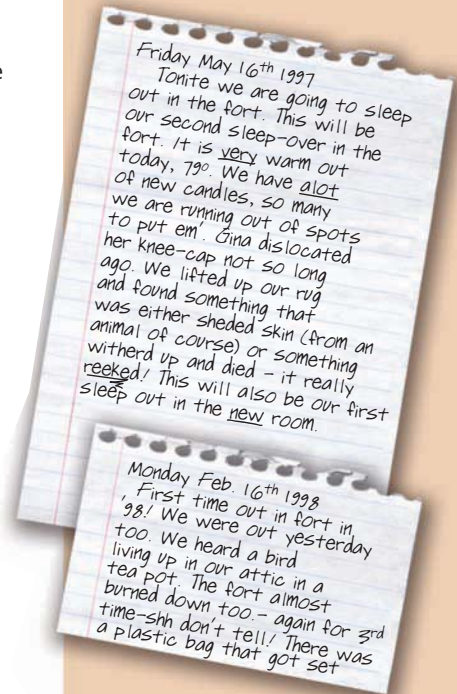 e
Friday May 16th 1997
Tonite we are going to sleep
out in the fort. This will be
our second sleep-over in the
fort. It is very warm out
today, 79°. We have alot
of new candles, so many
we are running out of spots
to put em'. Gina dislocated
her knee-cap not so long
ago. We lifted up our rug
and found something that
was either sheded skin (from an
animal of course) or something
witherd up and died – it really
reeked! This will also be our first
sleep out in the new room.
Monday Feb. 16th 1998
, First time out in fort in
'98! We were out yesterday
too. We heard a bird
living up in our attic in a
tea pot. The fort almost
burned down too. – again for 3rd
time-shh don't tell! There was
a plastic bag that got set